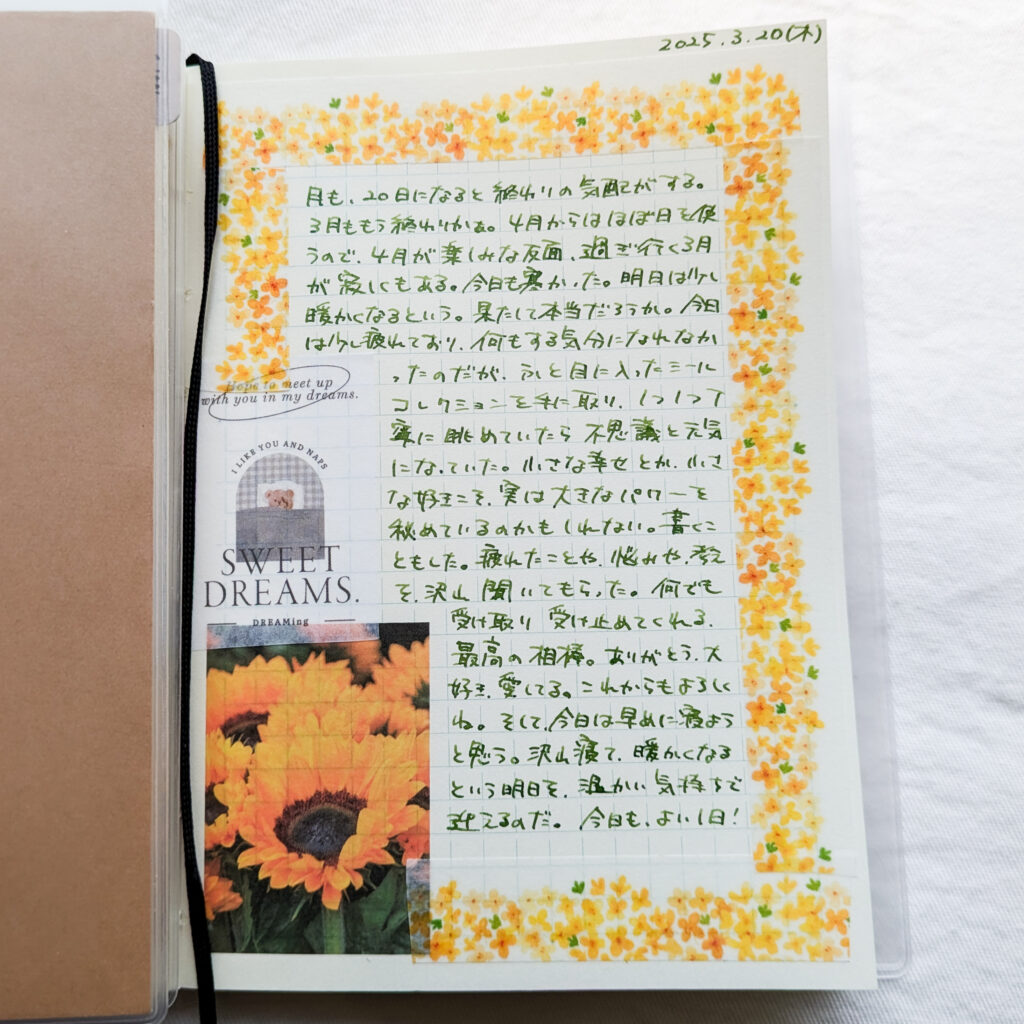 2025.3.20(木)
月も、20日になると終わりの気配がする。
3月ももう終わりかぁ。4月からはほぼ日を使
うので、4月が楽しみな反面、過ぎ行く3月
が寂しくもある。今日も寒かった。明日は少し
暖かくなるという。果たして本当だろうか。今日
は少し疲れており、何もする気分になれなか
ったのだが、ふと目に入ったシール
コレクションを手に取り、1つ1つ丁
寧に眺めていたら不思議と元気
になっていた。小さな幸せとか、小さ
な好きこそ、実は大きなパワーを
秘めているのかもしれない。書くこ
ともした。疲れたことや、悩みや、考え
を、沢山聞いてもらった。何でも
受け取り受け止めてくれる、
最高の相棒。ありがとう、大
好き、愛してる。これからもよろしく
ね。そして、今日は早めに寝よう
と思う。沢山寝て、暖かくなる
という明日を、温かい気持ちで
迎えるのだ。今日も、よい1日!
Hope to meet up
with you in my dreams.
I LIKE YOU AND NAPS
SWEET
DREAMS.
DREAMing